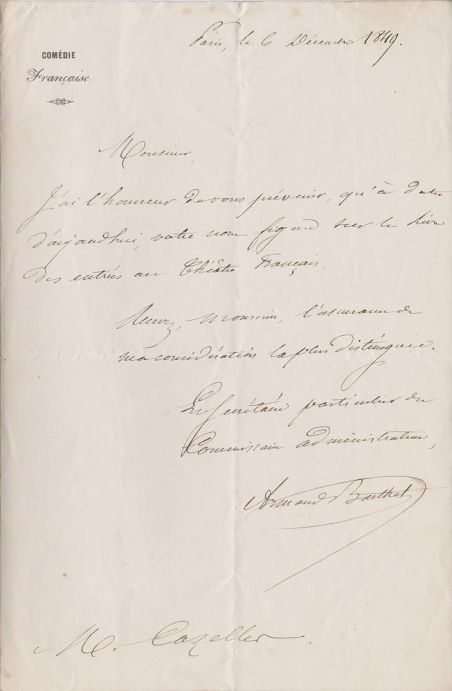 COMÉDIE
Française.
Paris, le 6 Décembre 1849.
Monsieur,
J'ai l'honneur de vous prévenir, qu'à dater
d'aujourd'hui, votre nom figure sur le livre
des entrées au Théâtre Français.
Recevez, Monsieur, l'assurance de
ma considération la plus distinguée.
Le Secrétaire particulier du
Commissaire administrateur,
Armand Barthet
M. Cazelles.